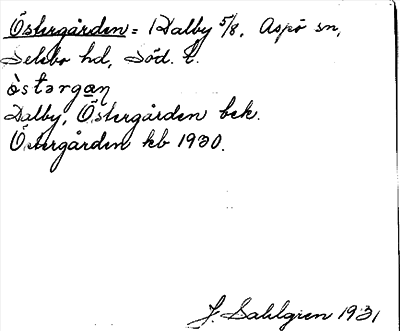 Östergården = Dalby 5/8, Aspö sn,
Selebo hd, Söd. l.
östərgan
Dalby, Östergården bek.
Östergården kb 1930.
J. Sahlgren 1931